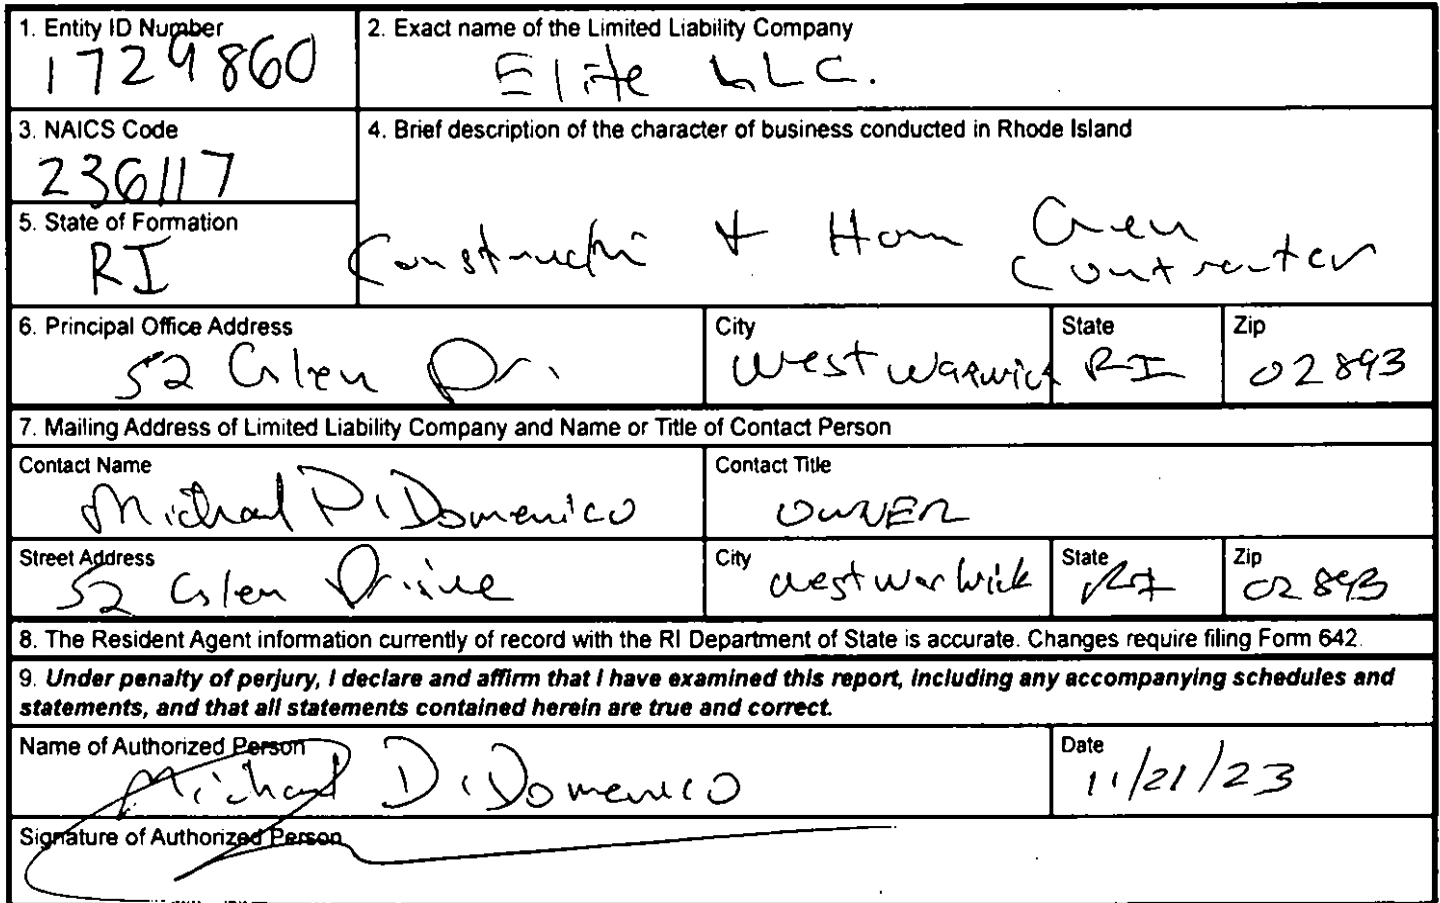 1. Entity ID Number
1729860
2. Exact name of the Limited Liability Company
Elite LLC.
3. NAICS Code
236117
4. Brief description of the character of business conducted in Rhode Island
5. State of Formation
RI
+
Contractor
6. Principal Office Address
52 Glen Dr.
City
West Warwick
State
RI
Zip
02893
7. Mailing Address of Limited Liability Company and Name or Title of Contact Person
Contact Name
Michael DiDomenico
Contact Title
OWNER
Street Address
52 Glen Drive
City
West Warwick
State
RI
Zip
02893
8. The Resident Agent information currently of record with the RI Department of State is accurate. Changes require filing Form 642.
9. Under penalty of perjury, I declare and affirm that I have examined this report, including any accompanying schedules and
statements, and that all statements contained herein are true and correct.
Name of Authorized Person
Michael DiDomenico
Date
11/21/23
Signature of Authorized Person